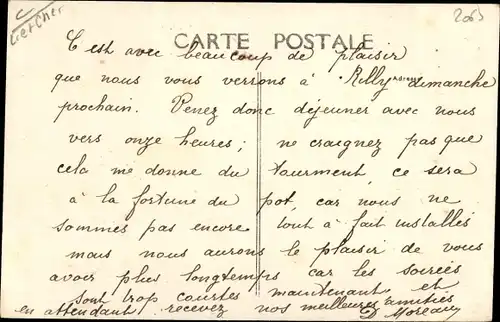 Loir et Cher
2065
CARTE POSTALE
C'est avec beaucoup de plaisir
que nous vous verrons à Rilly dimanche
prochain. Venez donc déjeuner avec nous
vers onze heures; ne craignez pas que
cela me donne du tourment, ce sera
à la fortune du pot, car nous ne
sommes pas encore tout à fait installés
mais nous aurons le plaisir de vous
avoir plus longtemps car les soirées
sont trop courtes maintenant et
en attendant recevez nos meilleures amitiés
D Moreau